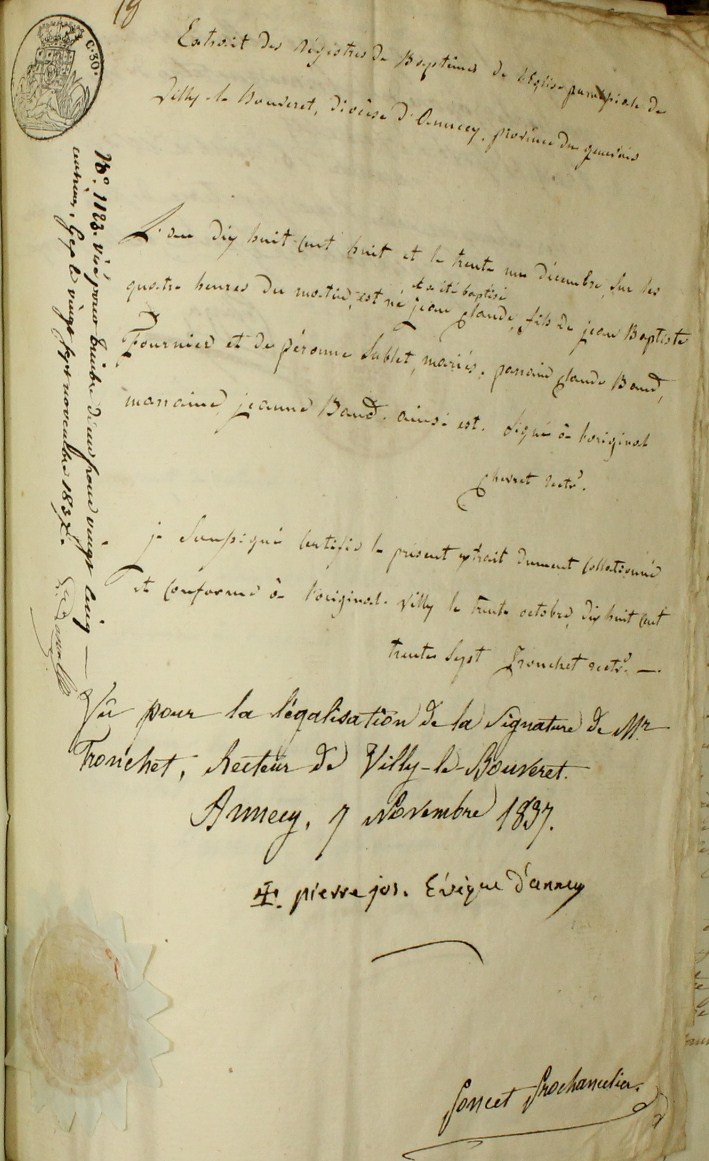 18
C. 30.
Extrait des Régistres de Baptêmes de l'Eglise paroissiale de
Villy-le-Bouveret, diocèse d'Annecy, province du genevois
L'an dix huit-cent huit et le trente une décembre, sur les
quatre heures du matin, est né et a été baptisé jean Claude, fils de jean Baptiste
Fournier et de péronne Sublet, mariés, parrain Claude Baud,
marraine jeanne Baud. ainsi est. signé à l'original
rectr.
je soussigné certifie le présent extrait dument collationné
et conforme à l'original. Villy le trente octobre, dix huit cent
trente sept Tronchet rectr. —
Vû pour la légalisation de la signature de Mr
Tronchet, Recteur de Villy-le-Bouveret.
Annecy, 7 Novembre 1837.
pierre jos. Evêque d'annecy
Poncet Prochancelier.
No. 1123. Visé pour timbre d'un franc vingt cinq —
centimes. Gex le vingt sept novembre 1837.